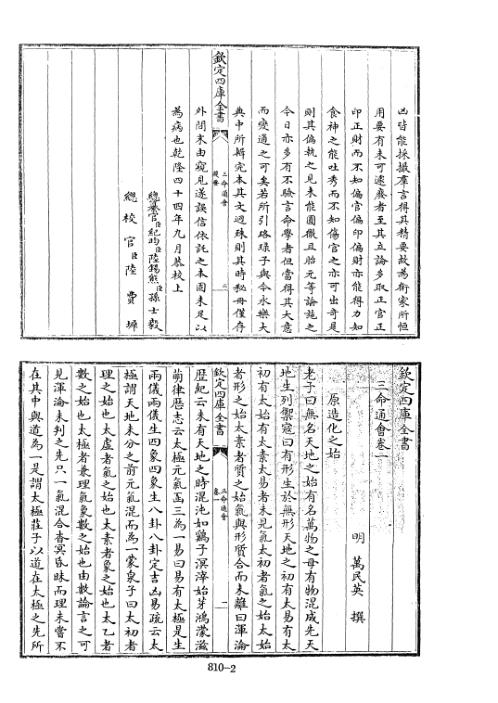 凶皆能採撮羣言得其精要故為術家所恒
用要有未可遽廢者至其立論多取正官正
印正財而不知偏官偏印偏財亦能得力如
食神之能吐秀而不知傷官之亦可出奇是
則其偏執之見未能圓徹且胎元等論施之
今日亦多有不驗言命學者但當得其大意
而變通之可矣若所引珞琭子與今永樂大
典中所輯完本其文逈殊則其時秘册僅存
欽定四庫全書
三命通會
提要
二
外間末由窺見遂誤信依託之本固未足以
為病也乾隆四十四年九月恭校上
總纂官臣紀昀臣陸錫熊臣孫士毅
總校官臣陸費墀
欽定四庫全書
三命通會卷一
明 萬民英 撰
原造化之始
老子曰無名天地之始有名萬物之母有物混成先天
地生列禦寇曰有形生於無形天地之初有太易有太
初有太始有太素太易者未見氣太初者氣之始太始
者形之始太素者質之始氣與形質合而未離曰渾淪
歷紀云未有天地之時混沌如鷄子溟涬始芽鴻濛滋
欽定四庫全書
三命通會
卷一
一
萌律歷志云太極元氣函三為一易曰易有太極是生
兩儀兩儀生四象四象生八卦八卦定吉凶易疏云太
極謂天地未分之前元氣混而為一蒙泉子曰太初者
理之始也太虛者氣之始也太素者象之始也太乙者
數之始也太極者兼理氣象數之始也由數論言之可
見渾淪未判之先只一氣混合杳冥昏昧而理未嘗不
在其中與道為一是謂太極莊子以道在太極之先所
810-2